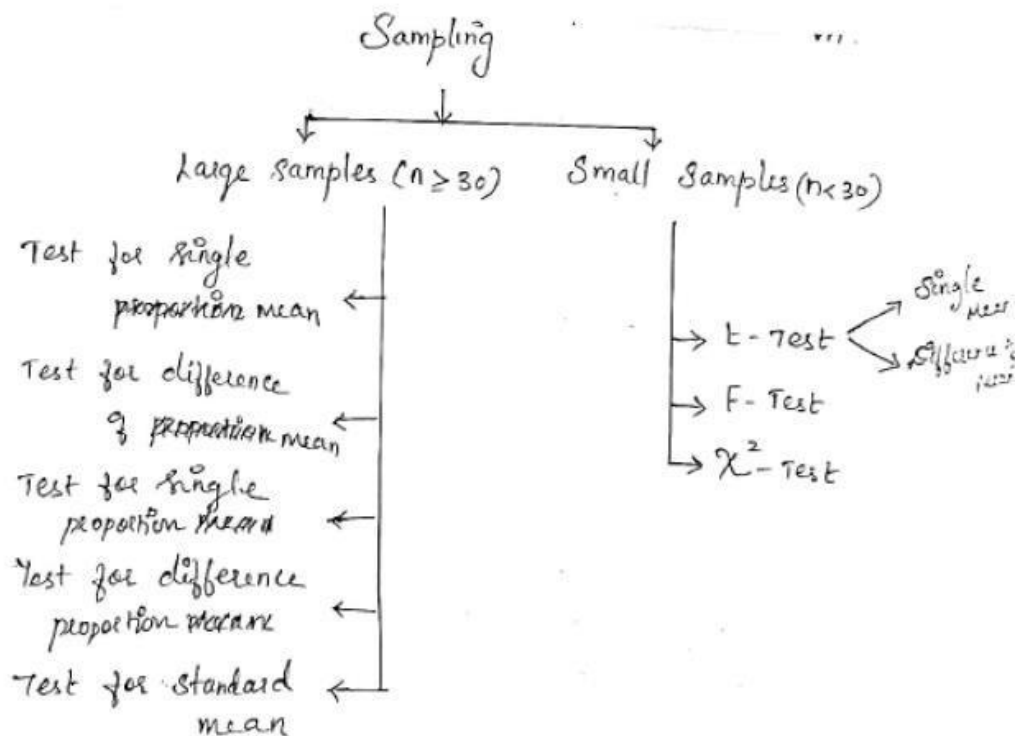 Sampling
Large Samples (n ≥ 30)
Small Samples (n < 30)
Test for single
proportion mean
Test for difference
of proportion mean
Test for single
proportion mean
Test for difference
proportion
Test for Standard
mean
t - Test
Single
F - Test
χ² - Test